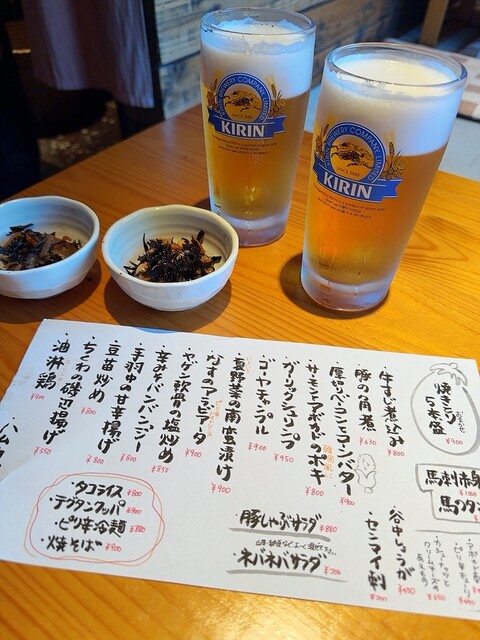 BREWERY COMPANY, LIMITED
SINCE 1888
KIRIN
BREWERY COMPANY, LIMITED
SINCE 1888
KIRIN
焼きとり
5本盛
¥900
馬刺赤身
¥1180
馬のタン
・牛すじ煮込み ¥800
・豚の角煮 ¥630
・厚切りベーコンとコーンバター ¥900
・サーモンとアボカドのポキ
・ガーリックシュリンプ ¥950
・ゴーヤチャンプル ¥900
・夏野菜の南蛮漬け ¥900
・なすのアラビアータ
・ヤゲン軟骨の塩炒め ¥850
・辛みそバンバンジー
・手羽中の甘辛揚げ ¥800
・豆苗炒め ¥800
・ちくわ磯辺揚げ ¥550
・油淋鶏 ¥900
ハムカ
・谷中しょうが ¥650
・センマイ刺 ¥700
カシューナッツと
クリームチーズの
・タコライス ¥800
・ピリ辛冷麺
・焼きそば ¥700
豚しゃぶサラダ ¥880
・ネバネバサラダ ¥700